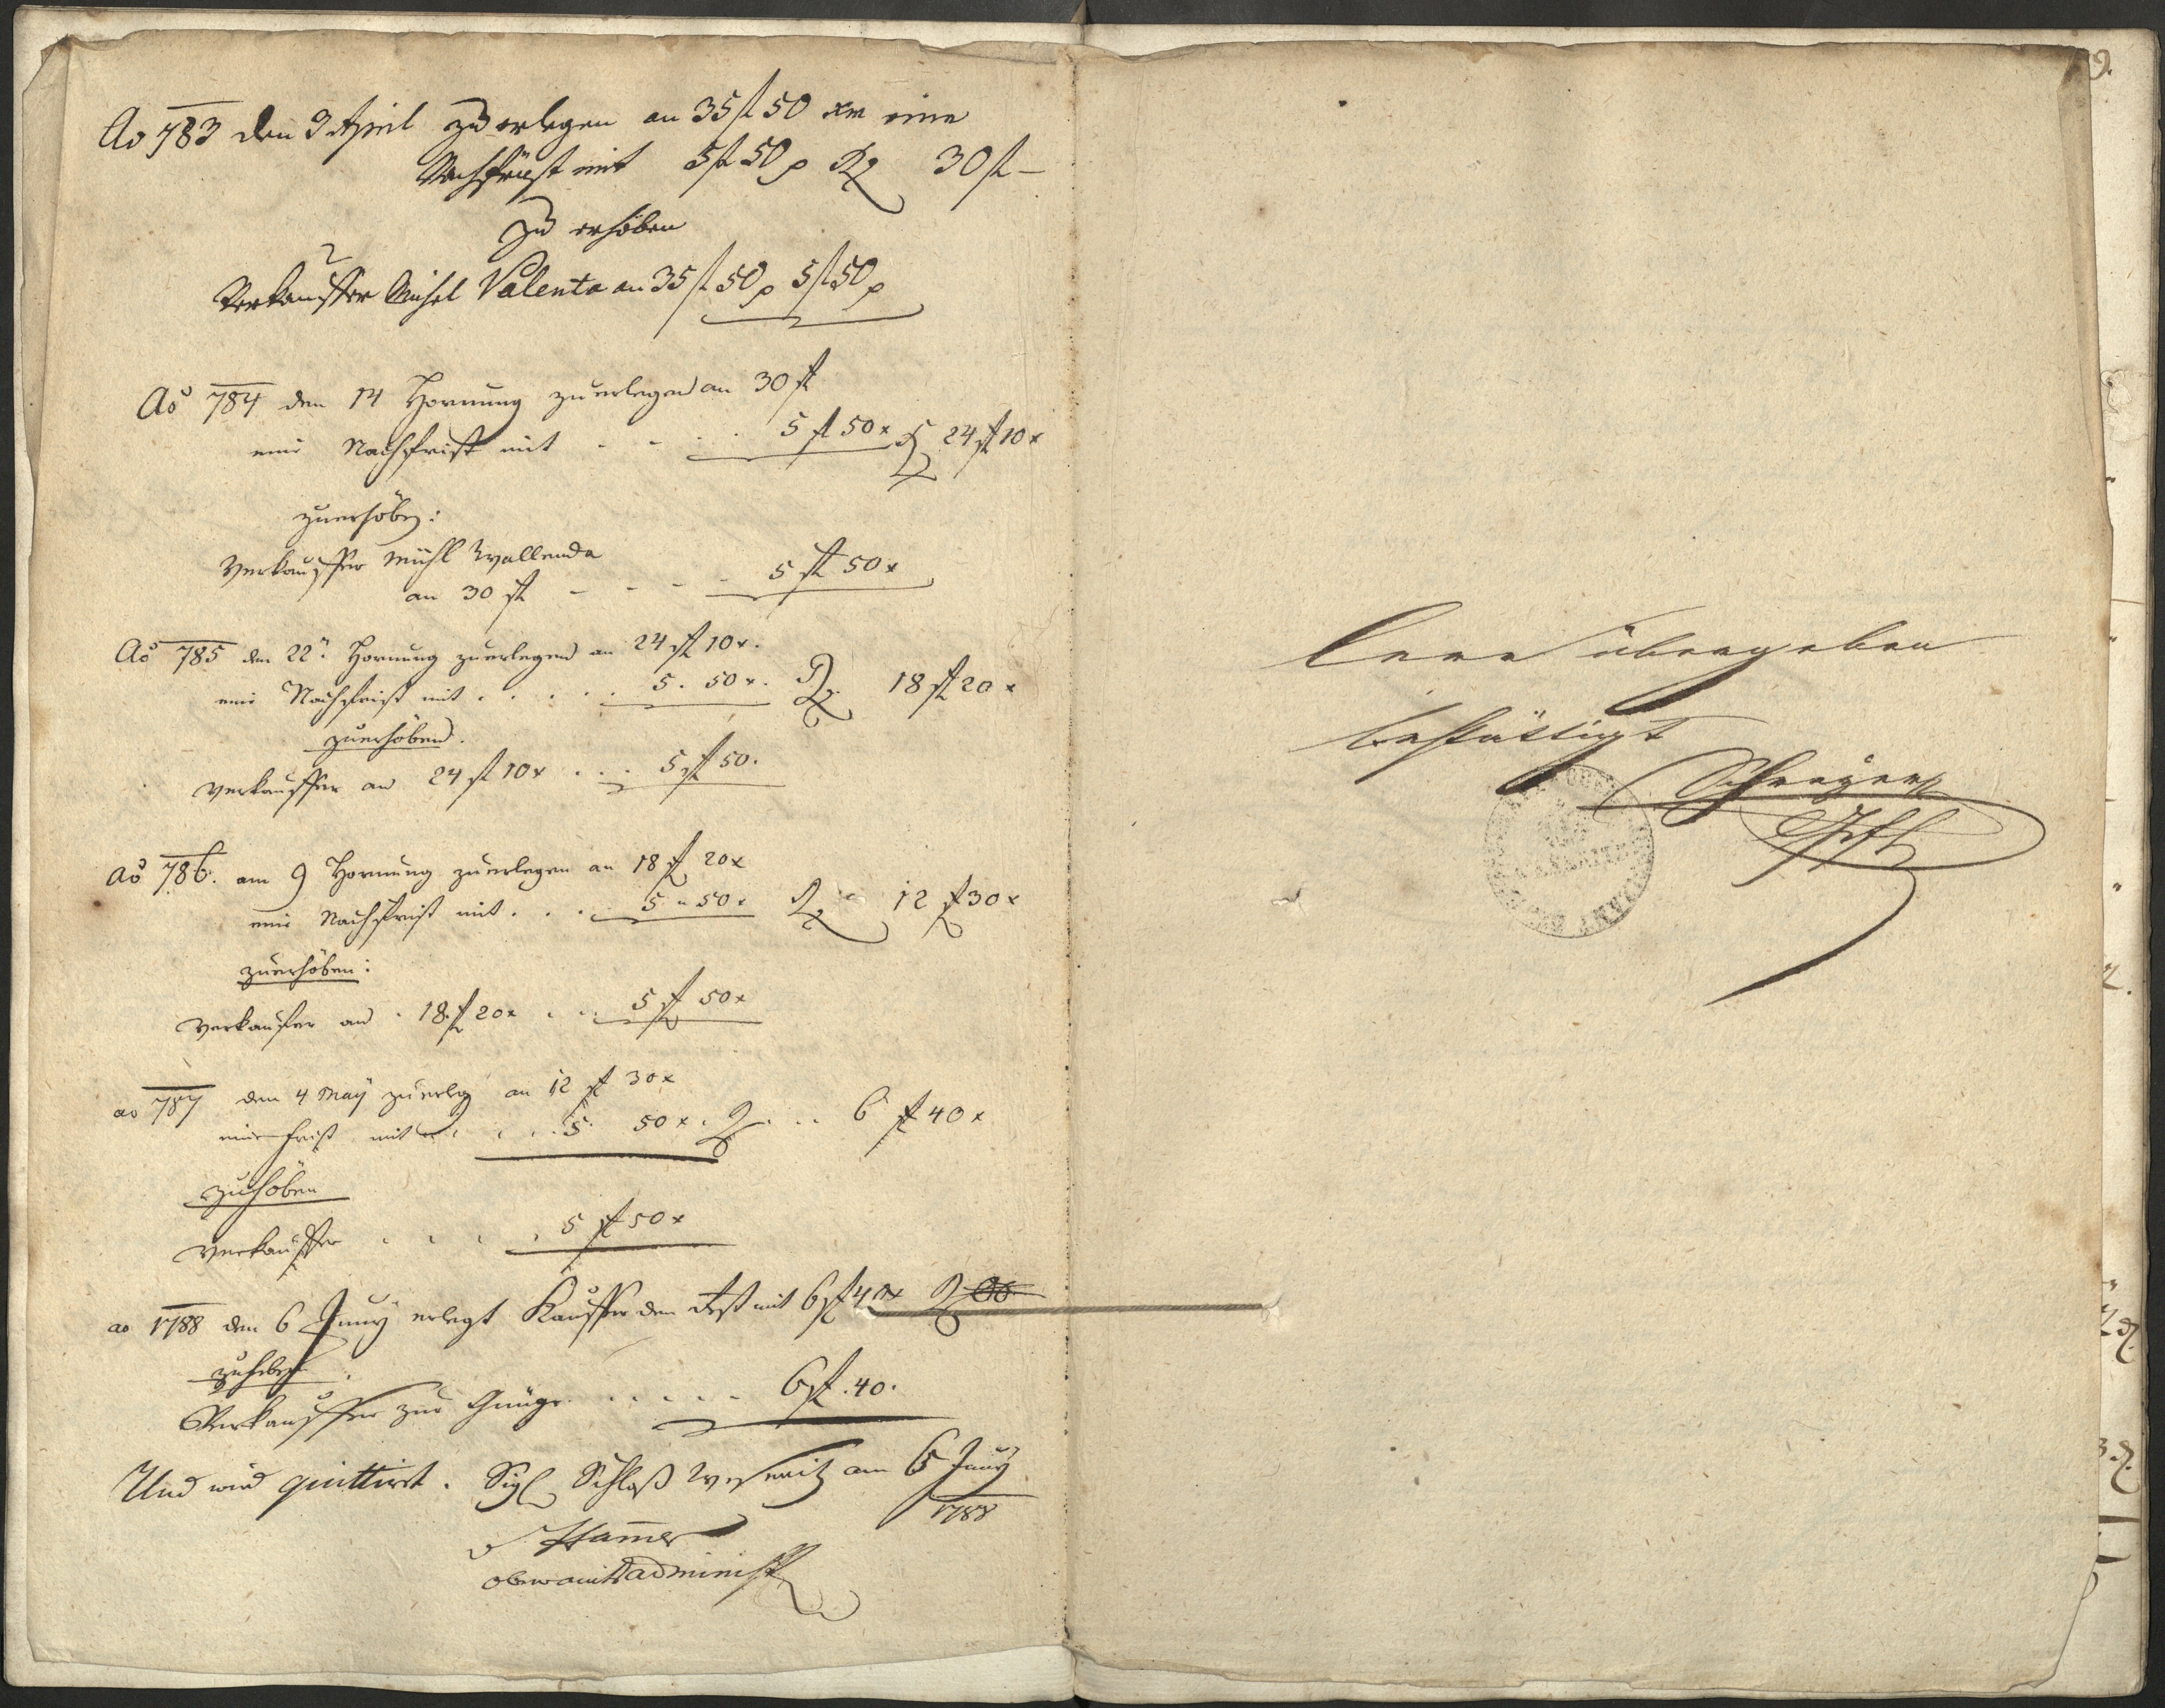 Ao 783 den 3 April zu erlegen an 35 fl 50 xr eine
Nachfrist mit 5 fl 50 x R 30 fl –
Zu erhöben
Verkauffer Michel Valenta an 35 fl 50 x 5 fl 50 x
Aõ 784 den 14 Hornung zu erlegen an 30 fl
eine Nachfrist mit - - . . 5 fl 50 x R 24 fl 10 x
zuerhöben:
Verkauffer Michl Wallenda
an 30 fl - - - - 5 fl 50 x
Aõ 785 den 22ⁿ Hornung zuerlegen an 24 fl 10 x.
eine Nachfrist mit . . . . . 5. 50 x. R 18 fl 20 x
zuerhöben.
Verkauffer an 24 fl 10 x . . . 5 fl 50.
Aõ 786. am 9 Hornung zuerlegen an 18 fl 20 x
eine Nachfrist mit . . . . 5 " 50 x R 12 fl 30 x
zuerhöben:
Verkaufer an . 18 fl 20 x . . . 5 fl 50 x
ao 787 den 4 Maÿ zuerleg an 12 fl 30 x
eine Frist mit . . . . 5. 50 x . R . . 6 fl 40 x
zuhöben
Verkauffer . . . . . 5 fl 50 x
ao 1788 den 6 Junÿ erlegt Kauffer den Rest mit 6 fl 40 x R
zuheben
Verkauffer zur Genüge . . . . . 6 fl. 40.
Und wird quittirt. Sigl Schloß Weseritz am 6 Junÿ
1788
Ham̄er
Oberamts administr
Leer übergeben
bestättigt